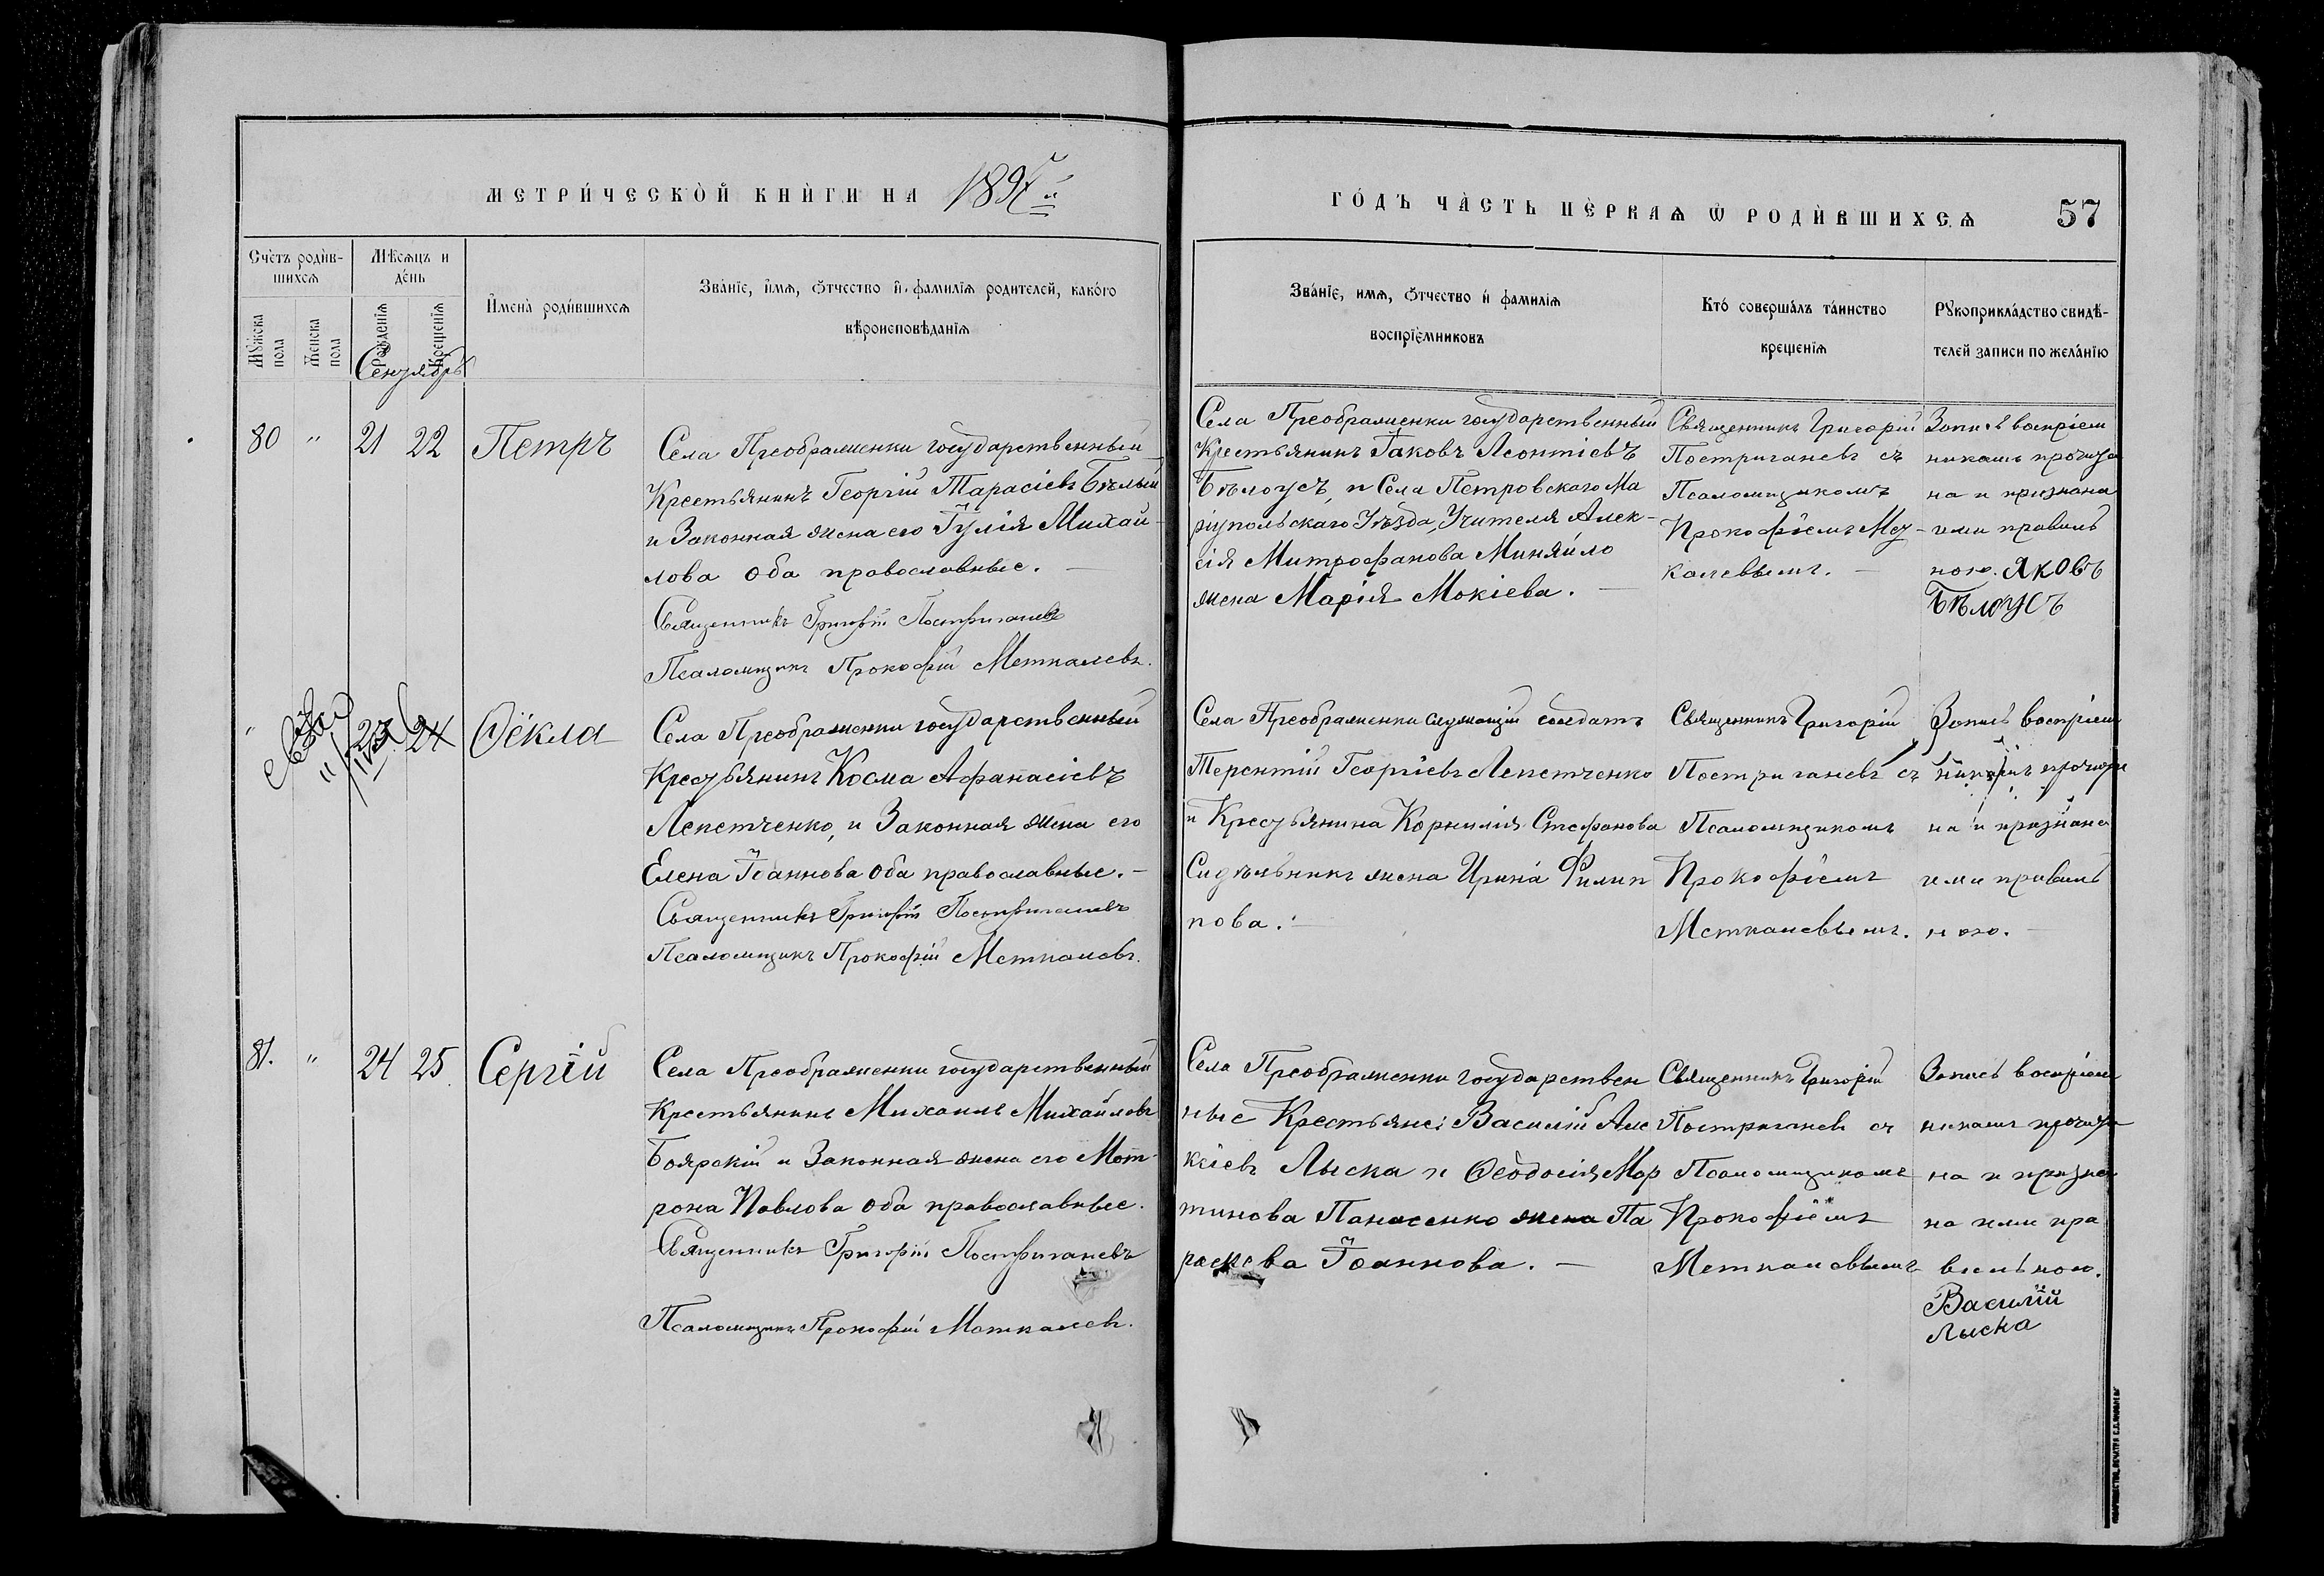 МЕТРИ́ЧЕСКОЙ КНИ́ГИ НА 1897й
ГО́ДЪ ЧА́СТЬ ПЕ́РВАѦ Ѡ҆ РОДИ́ВШИХСѦ 57
Сче́тъ роди́в-
шихсѧ
Мѣ́сѧцъ и
де́нь
Мꙋ́жска
пола
Же́нска
пола
Рожде́нїѧ
Креще́нїѧ
И҆мена̀ роди́вшихсѧ
Зва́нїе, и҆́мѧ, ѻ҆́тчество и҆ фамилїѧ родителей, како́го
вѣроисповѣ́данїѧ
Зва́нїе, имѧ, ѻ҆́тчество и҆ фамилїѧ
воспрїе́мниковъ
Кто́ соверша́лъ та́инство
креще́нїѧ
Рꙋкоприкла́дство свидѣ́-
телей записи по жела́нїю
Сентябрь
80 " 21 22 Петръ
Села Преображенки государственный
Крестьянинъ Георгій Тарасіевъ Бѣлый
и Законная жена его Іулія Михаи-
лова оба православные. —
Священникъ Григорій Постригачевъ
Псаломщикъ Прокофій Меткалевъ.
Села Преображенки государственный
Крестьянинъ Іаковъ Леонтіевъ
Бѣлоусъ, и Села Петровскаго Ма
ріупольскаго Уѣзда, Учителя Алек-
сія Митрофанова Миняйло
жена Марія Мокіева. —
Священникъ Григорій
Постриганевъ съ
Псаломщикомъ
Прокофіемъ Мет-
калевымъ. —
Запись воспріем
никамъ прочита
на и признана
ими правиль
ною. Яковъ
Бѣлоусъ
" 23 24 Ѳекла
Села Преображенки государственный
Крестьянинъ Косма Афанасіевъ
Лепетченко, и Законная жена его
Елена Іоаннова оба православные. —
Священникъ Григорій Постриганевъ
Псаломщикъ Прокофій Меткалевъ.
Села Преображенки служащій солдатъ
Терентій Георгіевъ Лепетченко
и Крестьянина Корнилія Стефанова
Сидѣльникъ жена Ирина Филип
пова. —
Священникъ Григорій
Постриганевъ съ
Псаломщикомъ
Прокофіемъ
Меткалевымъ.
Запись воспріем
никамъ прочита
на и признана
ими правиль
ною. —
81. " 24 25 Сергій
Села Преображенки государственный
Крестьянинъ Михаилъ Михайловъ
Боярскій и Законная жена его Мот-
рона Павлова оба православные.
Священникъ Григорій Постриганевъ
Псаломщикъ Прокофій Меткалевъ.
Села Преображенки государствен
ные Крестьяне: Василій Але
ксіевъ Лыска и Ѳеодосія Мар
тинова Панасенко жена Па
раскева Іоаннова. —
Священникъ Григорій
Постриганевъ съ
Псаломщикомъ
Прокофіемъ
Меткалевымъ
Запись воспріем
никамъ прочита
на и призна
на ими пра
вильною.
Василій
Лыска